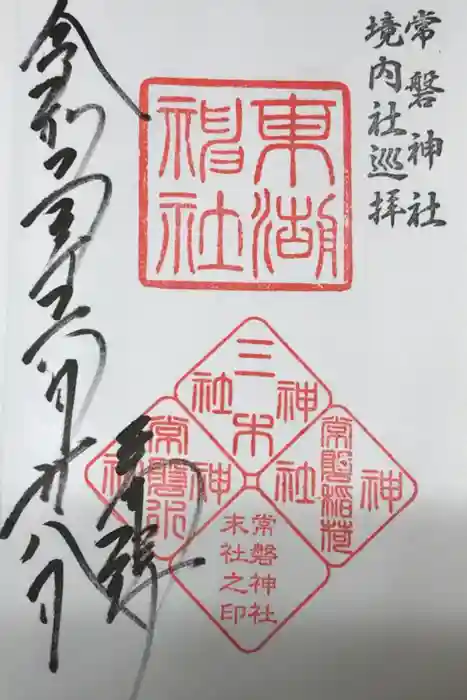 常磐神社
境内社巡拝
東湖
神社
三木
神社
常磐稲荷
神社
常磐
神社
常磐神社
末社之印
奉拝
令和